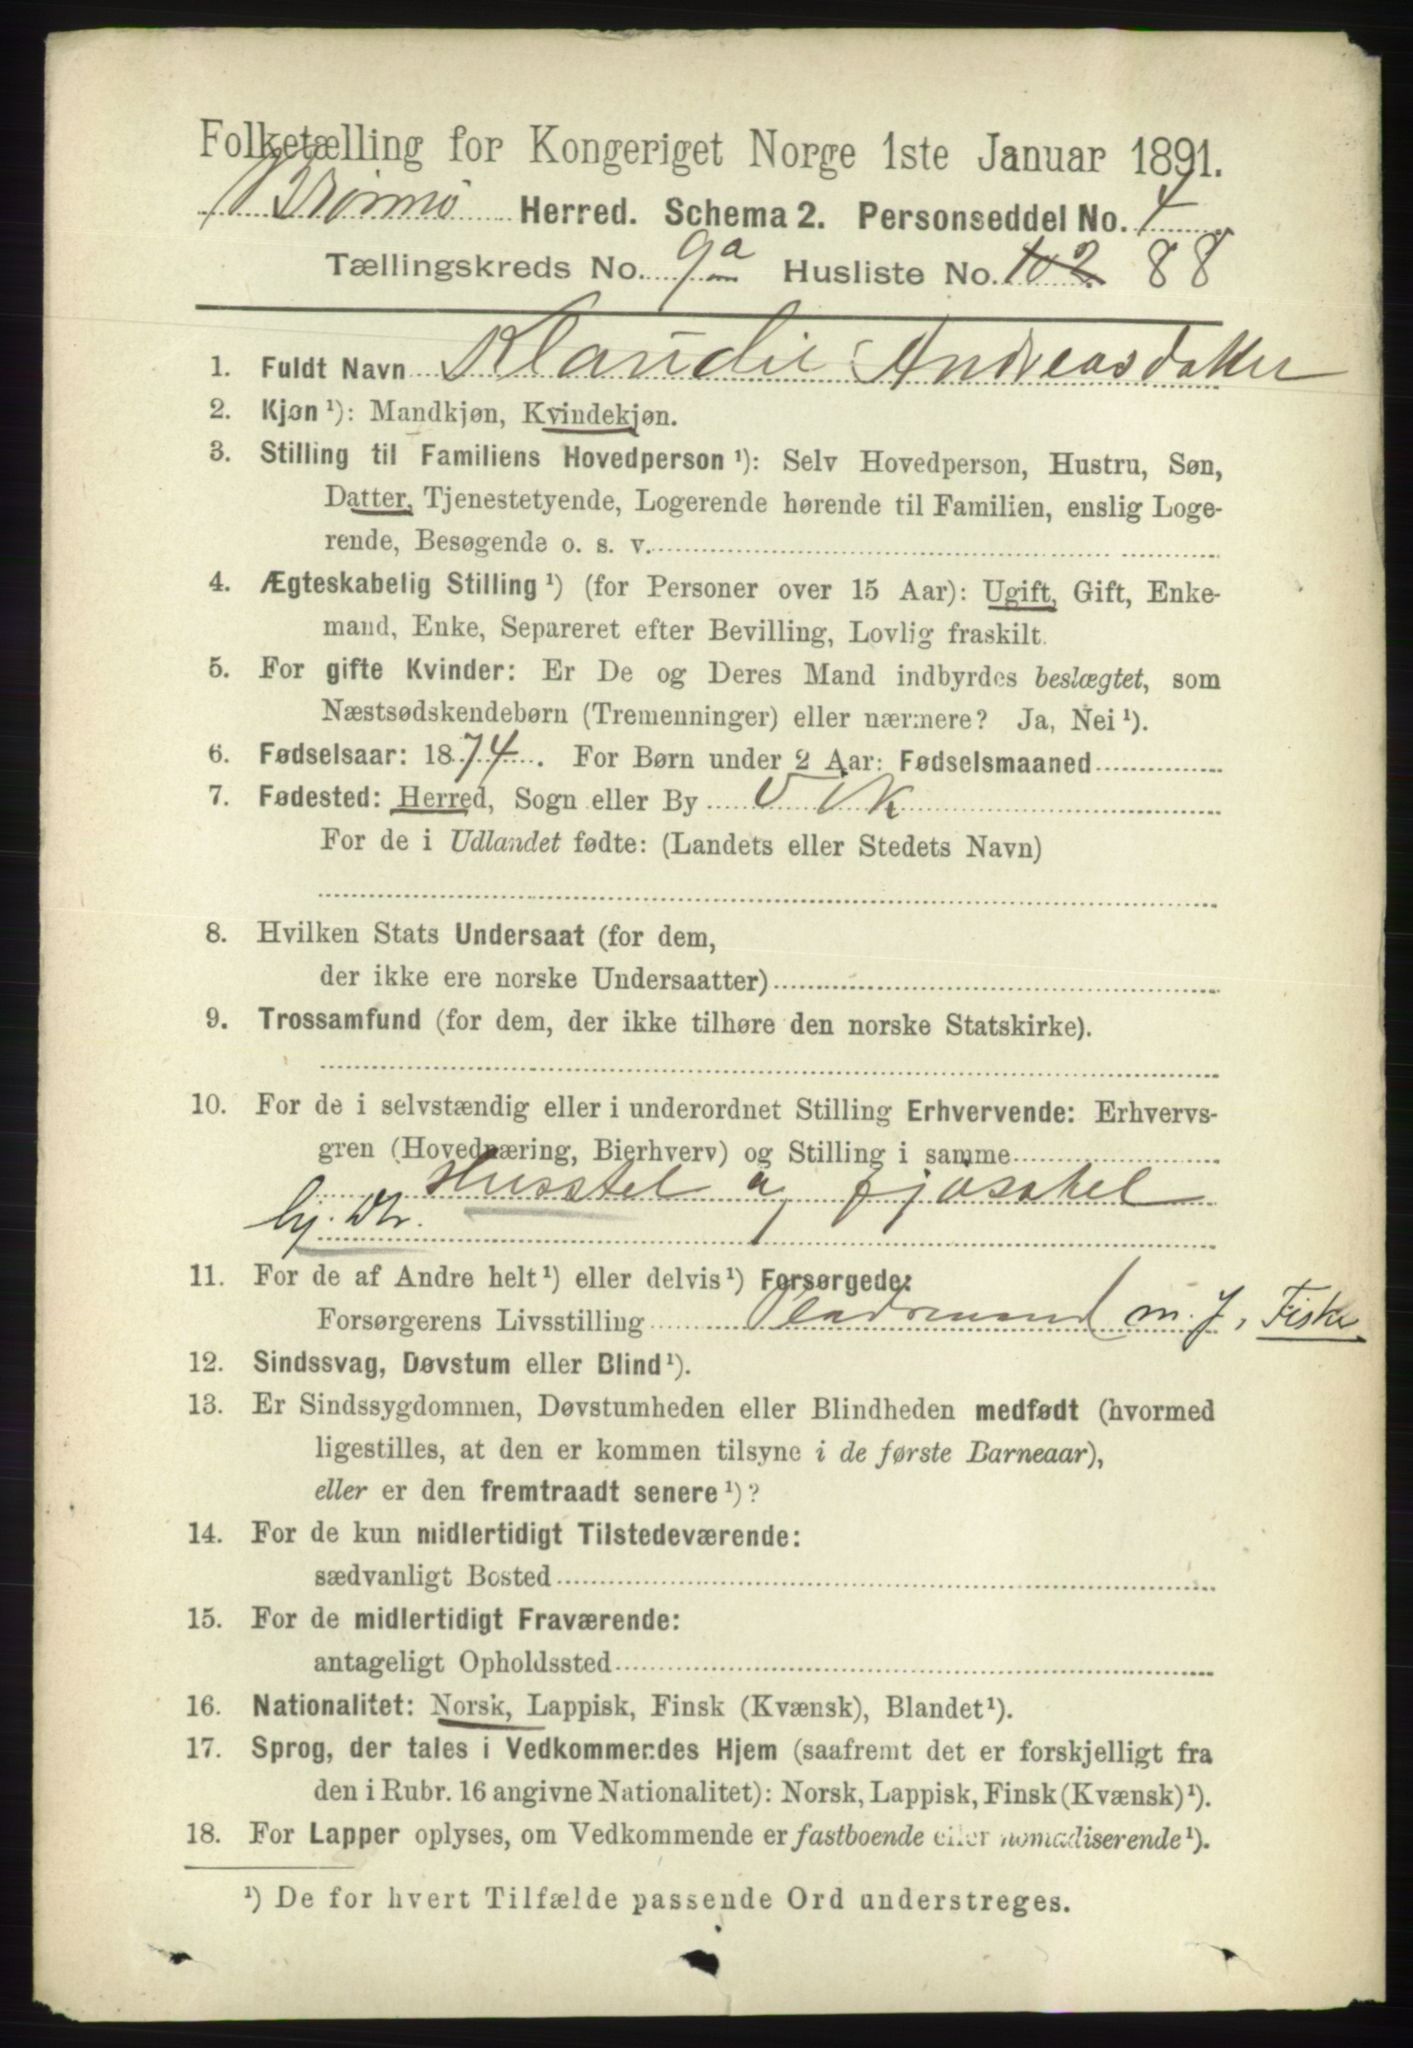 Folketælling for Kongeriget Norge 1ste Januar 1891.
Brønnø Herred. Schema 2. Personseddel No. 4
Tællingskreds No. 9a Husliste No. 102 88
1. Fuldt Navn Klaudie Andreasdatter
2. Kjøn ¹): Mandkjøn, Kvindekjøn.
3. Stilling til Familiens Hovedperson ¹): Selv Hovedperson, Hustru, Søn,
Datter, Tjenestetyende, Logerende hørende til Familien, enslig Loge-
rende, Besøgende o. s. v.
4. Ægteskabelig Stilling ¹) (for Personer over 15 Aar): Ugift, Gift, Enke-
mand, Enke, Separeret efter Bevilling, Lovlig fraskilt.
5. For gifte Kvinder: Er De og Deres Mand indbyrdes beslægtet, som
Næstsødskendebørn (Tremenninger) eller nærmere? Ja, Nei ¹).
6. Fødselsaar: 1874. For Børn under 2 Aar: Fødselsmaaned
7. Fødested: Herred, Sogn eller By Vik
For de i Udlandet fødte: (Landets eller Stedets Navn)
8. Hvilken Stats Undersaat (for dem,
der ikke ere norske Undersaatter)
9. Trossamfund (for dem, der ikke tilhøre den norske Statskirke).
10. For de i selvstændig eller i underordnet Stilling Erhvervende: Erhvervs-
gren (Hovednæring, Bierhverv) og Stilling i samme
Husstel og fjøsstel
hj. Dtr.
11. For de af Andre helt ¹) eller delvis ¹) Forsørgede:
Forsørgerens Livsstilling Pladsmand m. J, Fisker
12. Sindssvag, Døvstum eller Blind ¹).
13. Er Sindssygdommen, Døvstumheden eller Blindheden medfødt (hvormed
ligestilles, at den er kommen tilsyne i de første Barneaar),
eller er den fremtraadt senere ¹)?
14. For de kun midlertidigt Tilstedeværende:
sædvanligt Bosted
15. For de midlertidigt Fraværende:
antageligt Opholdssted
16. Nationalitet: Norsk, Lappisk, Finsk (Kvænsk), Blandet ¹).
17. Sprog, der tales i Vedkommendes Hjem (saafremt det er forskjelligt fra
den i Rubr. 16 angivne Nationalitet): Norsk, Lappisk, Finsk (Kvænsk) ¹).
18. For Lapper oplyses, om Vedkommende er fastboende eller nomadiserende ¹).
¹) De for hvert Tilfælde passende Ord understreges.